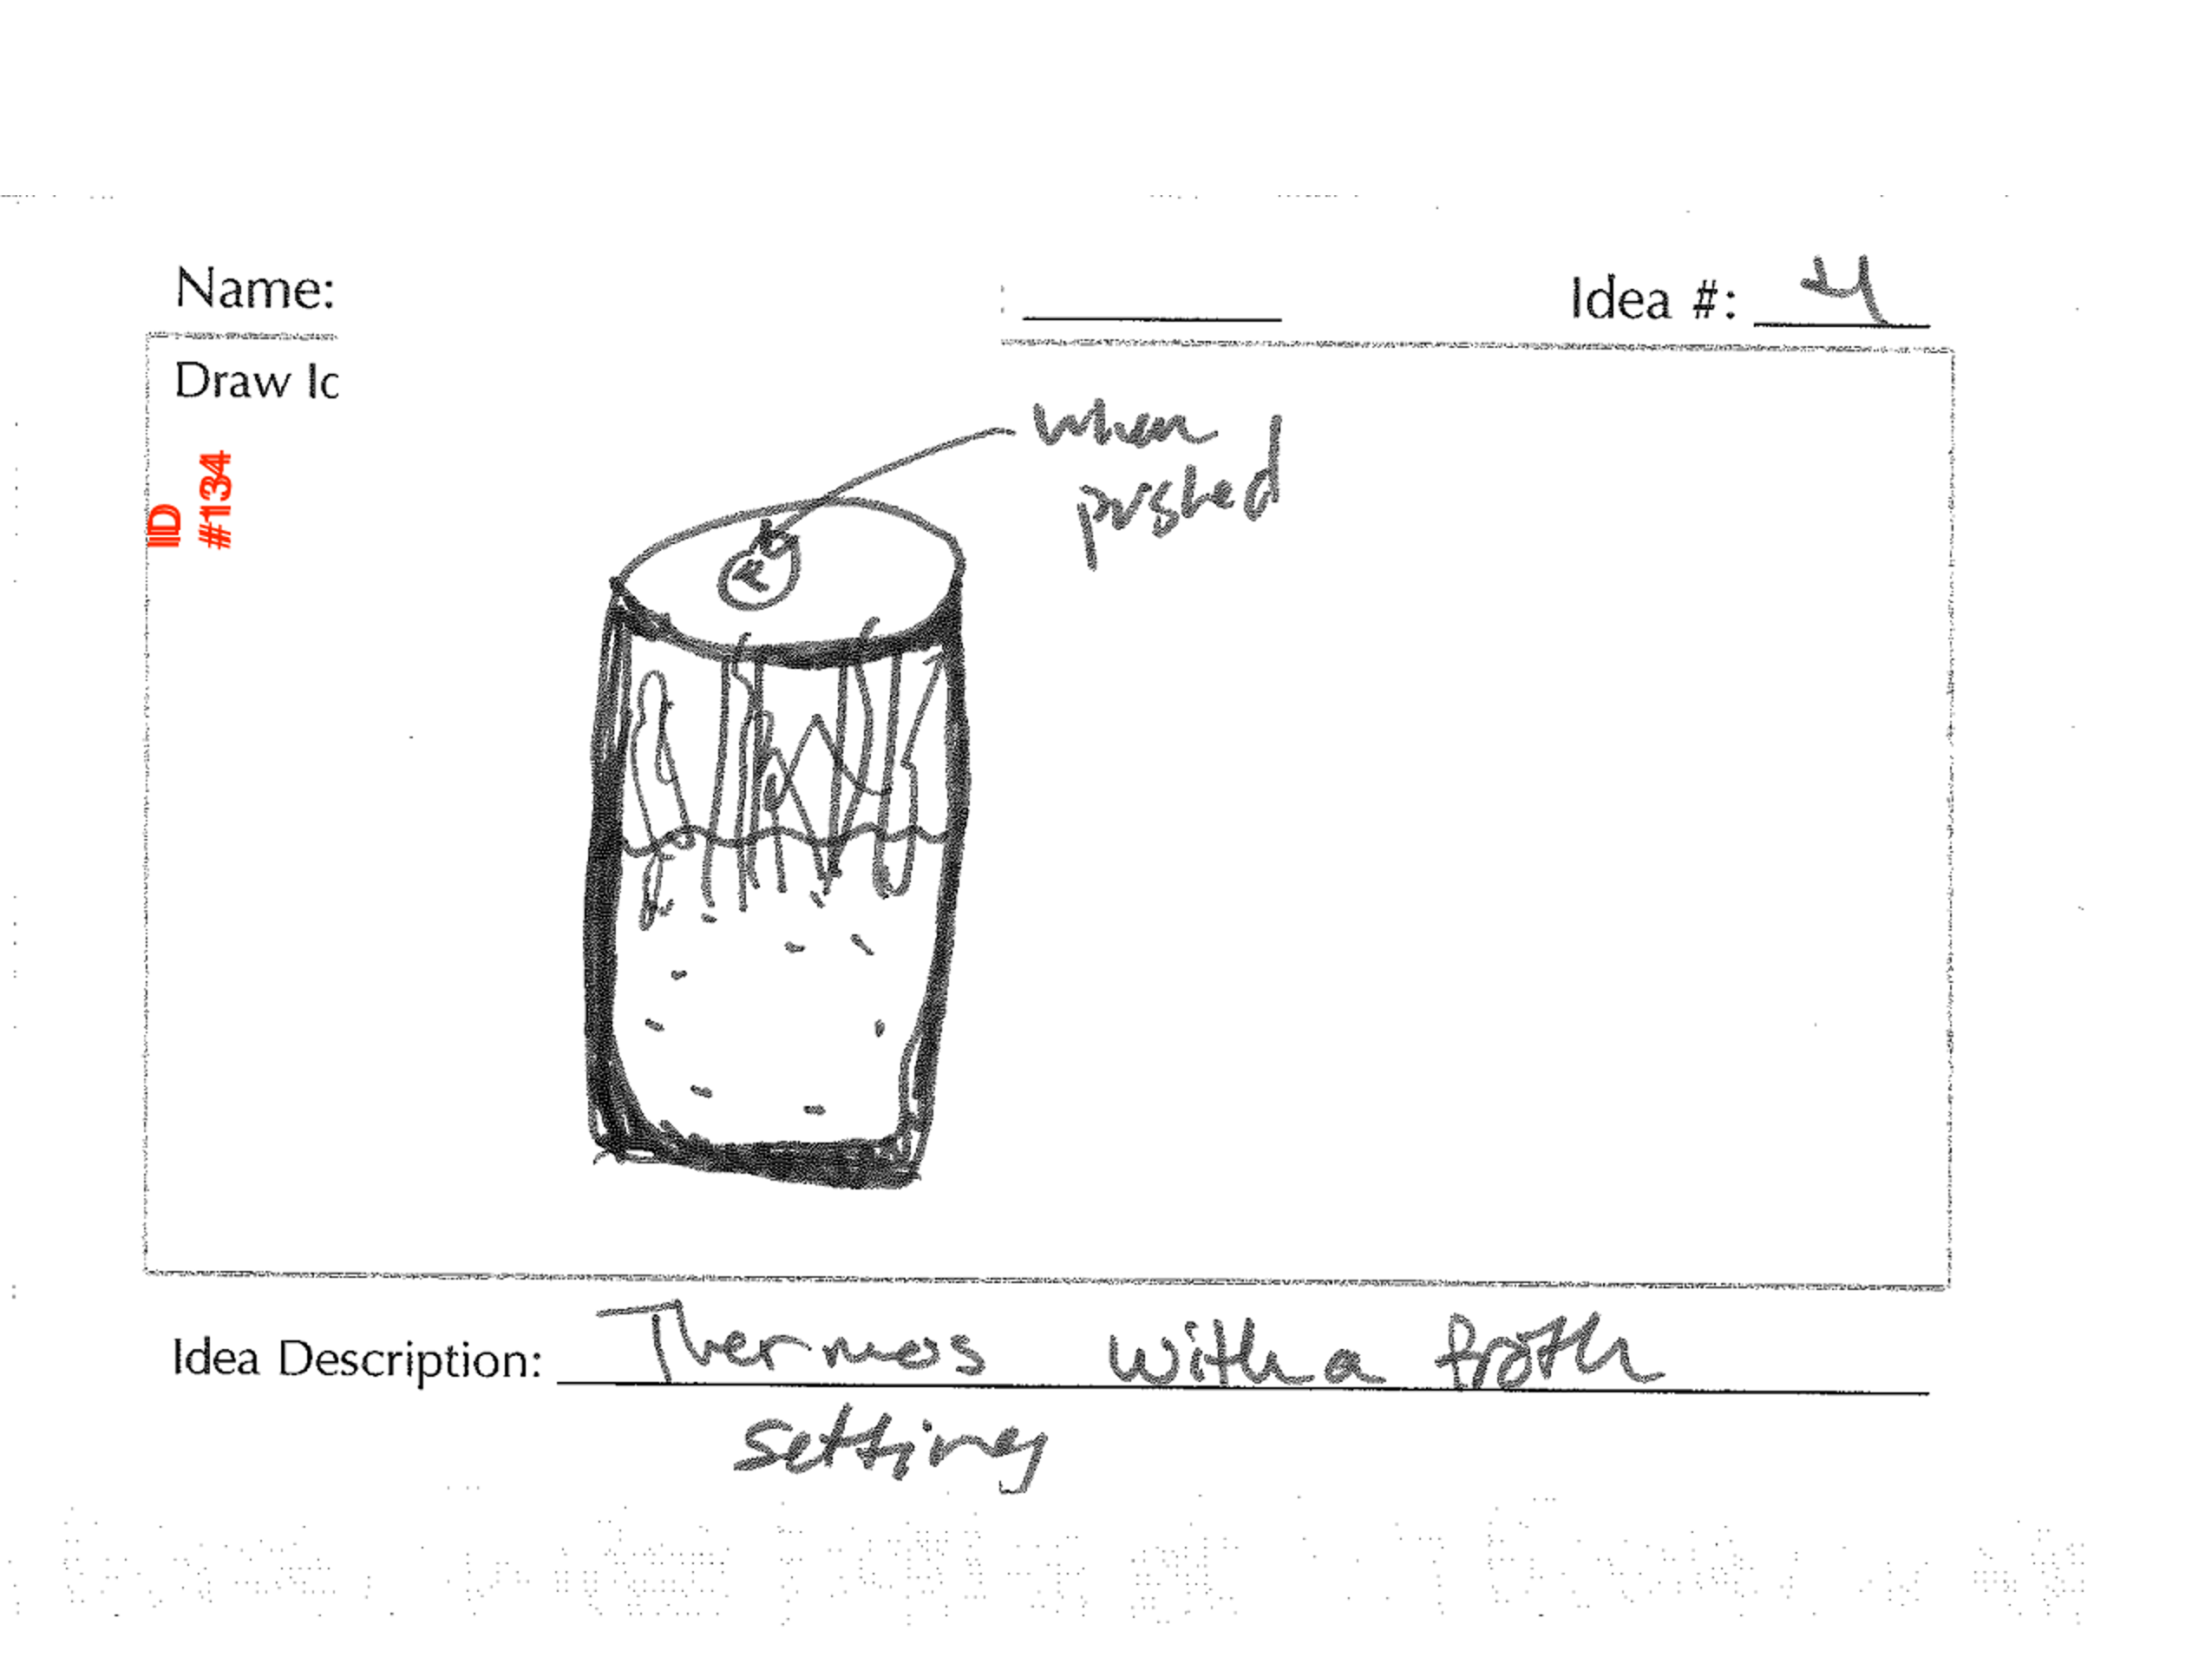 Name:
Idea #: 4
Draw Id
ID
#134
when
pushed
Idea Description: Thermos with a froth
setting